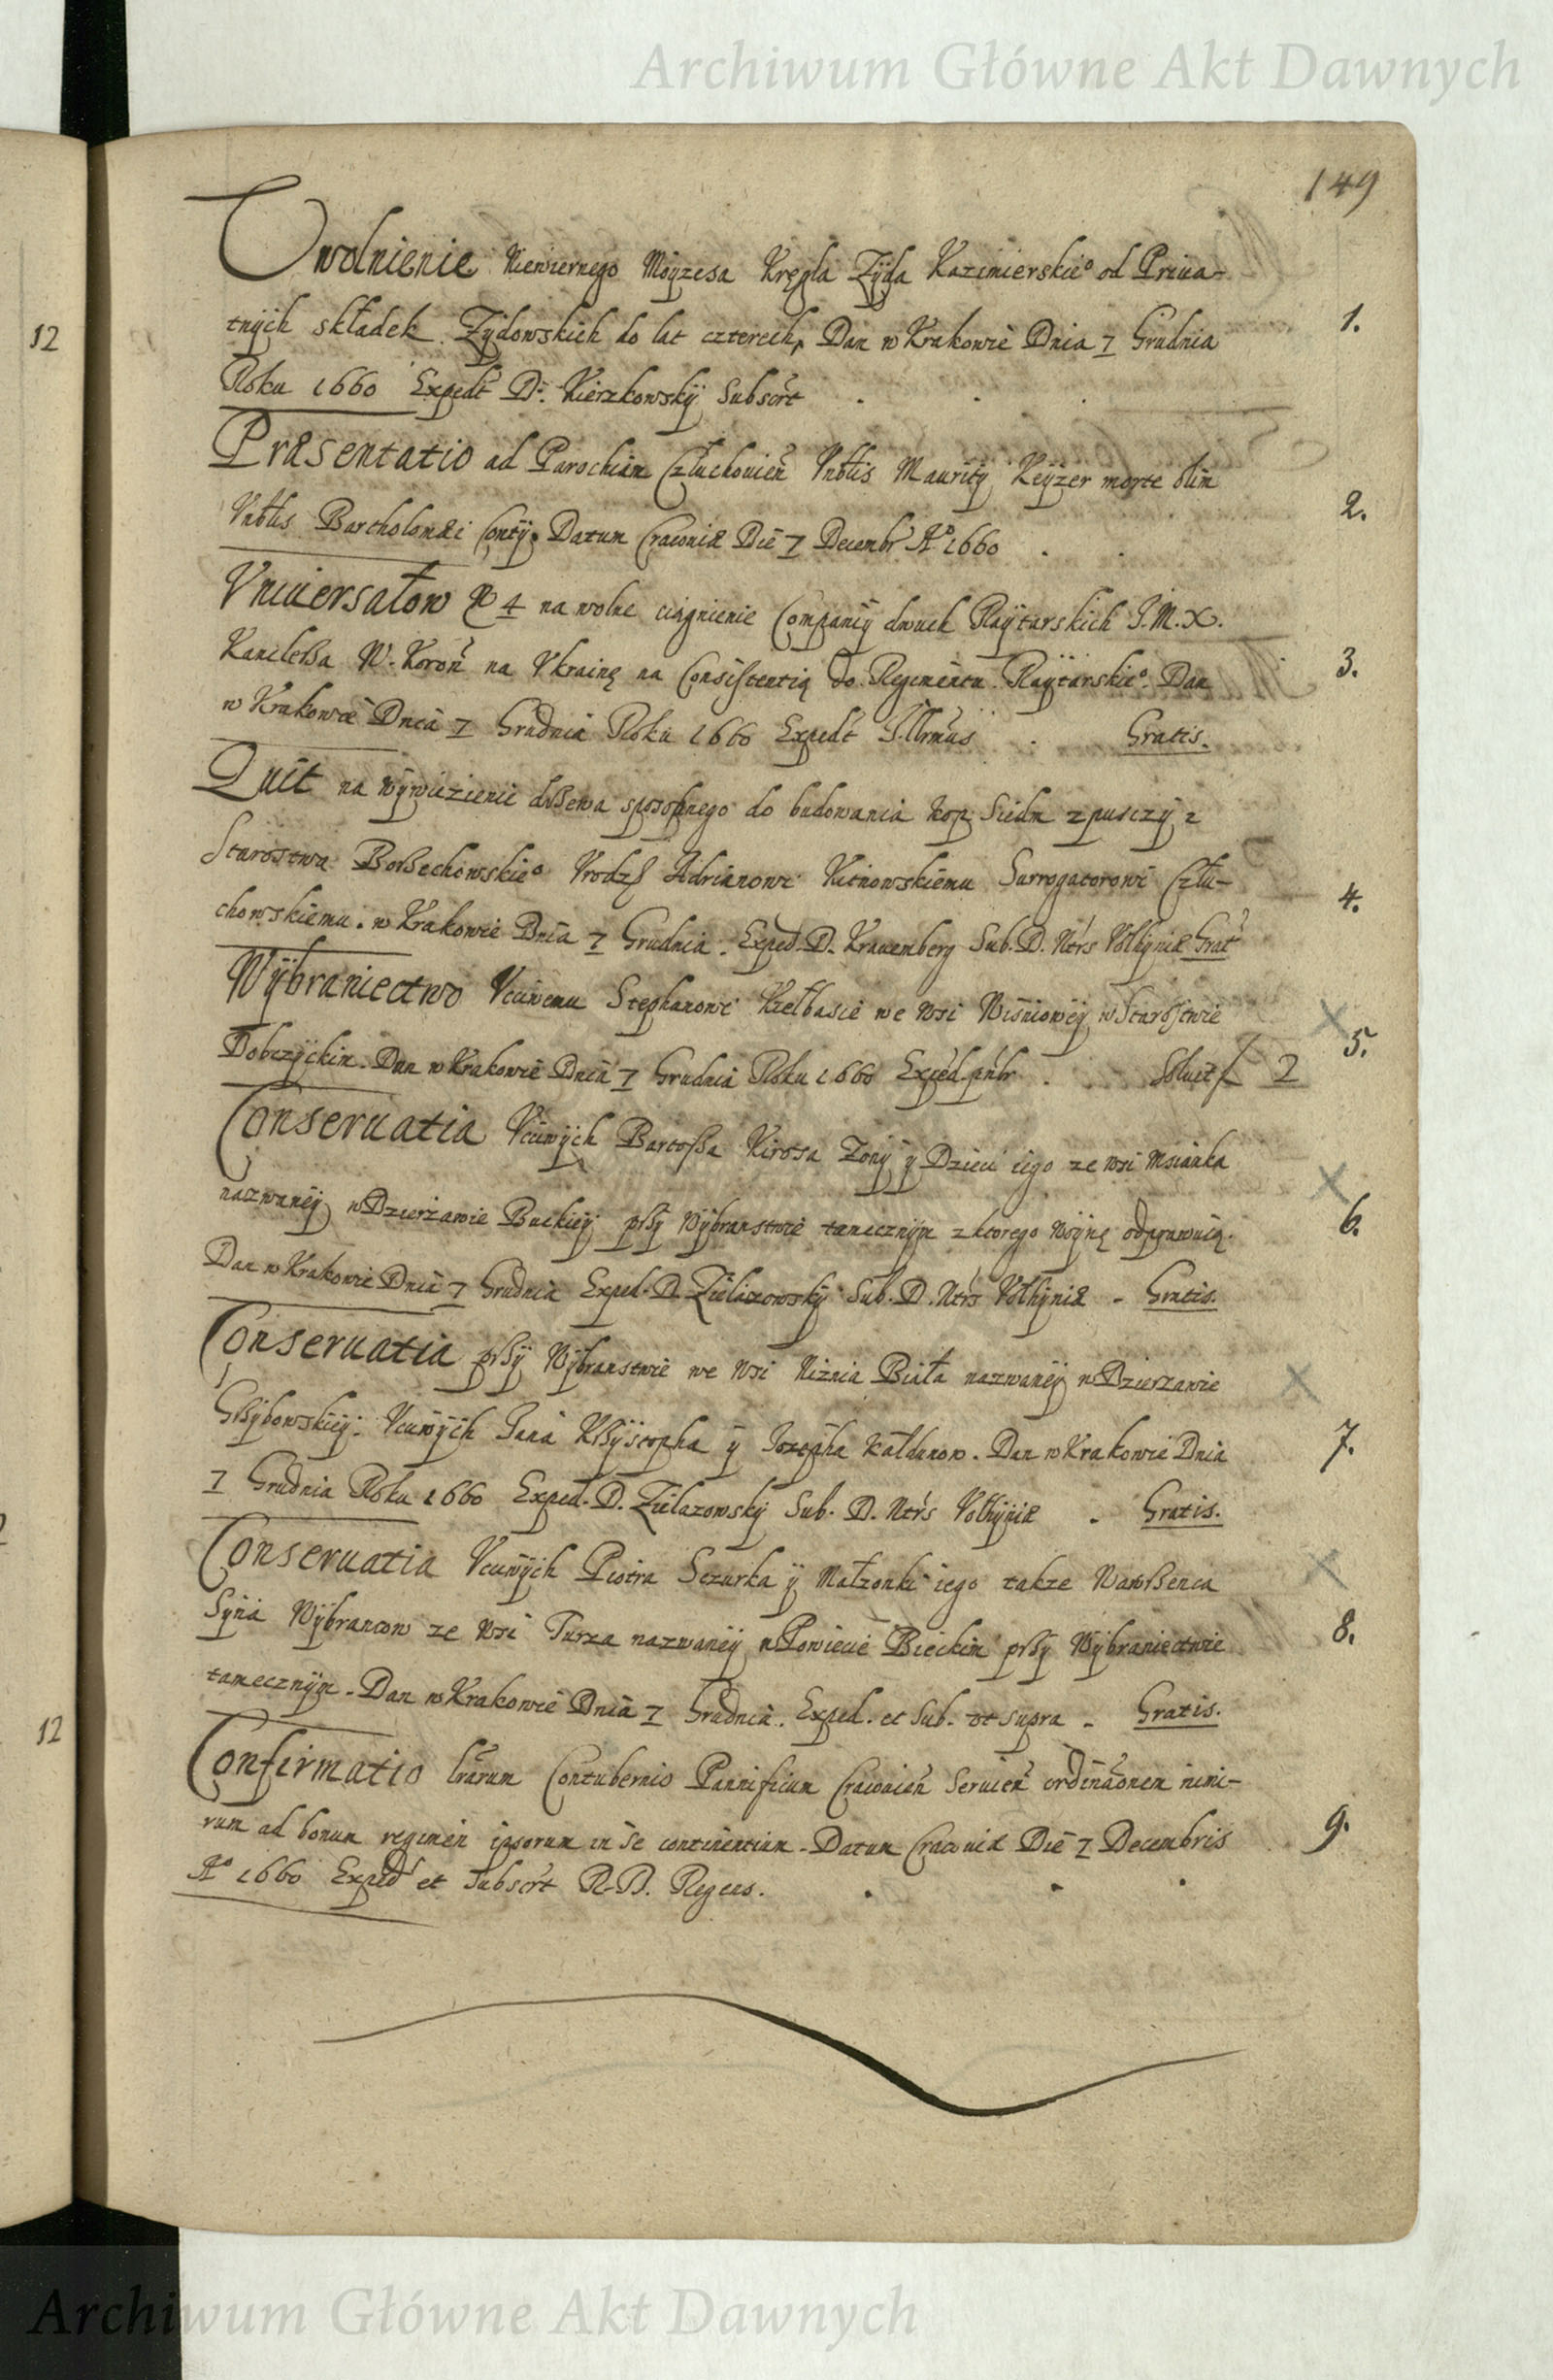 Archiwum Główne Akt Dawnych
149
Uwolnienie Niewiernego Moyzesa Kręgla Zyda Kazimierskie° od Priua-
tnych składek Zydowskich do lat czterech, Dan w Krakowie Dnia 7 Grudnia
1.
12
Roku 1660 Expedt D. Kierzkowsky Subscrt
Præsentatio ad Parochiam Człuchouien Vnblis Maurity Keyzer morte olim
Vnblis Bartholomæi Conty. Datum Cracouiæ Die 7 Decembr A° 1660
2.
Vniuersałow No 4 na wolne ciągnienie Companij dwuch Raytarskich J.M.X.
Kanclerza W. Koron na Vkrainę na Consistentią do Regimentu Raytarskie°. Dan
3.
w Krakowie Dnia 7 Grudnia Roku 1660 Expedt Illrmus Gratis.
Quit na wywiezienie drzewa sposobnego do budowania kop Siedm z pusczy z
Starostwa Borzechowskie° Vrodz Adrianowi Kitnowskiemu Surrogatorowi Człu-
4.
chowskiemu. w Krakowie Dnia 7 Grudnia. Exped. D. Krauemberg Sub. D. Ntrs Volhyniæ Grat
Wybraniectwo Vcciwemu Stephanowi Kiełbasie we wsi Wisniowey w Starostwie
5.
Dobczyckim. Dan w Krakowie Dnia 7 Grudnia Roku 1660 Exped. pnbr Soluit f 2
Conseruatia Vcciwych Bartosza Kirosa Zony y Dzieci iego ze wsi Msianka
nazwaney w Dzierzawie Buckiey przy Wybranstwie tamecznym z ktorego Woynę odprawuią.
6.
Dan w Krakowie Dnia 7 Grudnia Exped. D. Zielazowsky Sub. D. Ntrs Volhyniæ - Gratis.
Conseruatia przy Wybranstwie we wsi Niznia Biała nazwaney w Dzierzawie
Grzybowskiey: Vcciwych Jana Krzysztopha y Jozepha Kałdunow. Dan w Krakowie Dnia
7.
7 Grudnia Roku 1660 Exped. D. Zielazowsky Sub. D. Ntrs Volhyniæ - Gratis.
Conseruatia Vcciwych Piotra Sczurka y Małzonki iego takze Wawrzenca
Syna Wybrancow ze wsi Turza nazwaney w Powiecie Bieckim przy Wybraniectwie
8.
tamecznym. Dan w Krakowie Dnia 7 Grudnia. Exped. et Sub. vt supra - Gratis.
12
Confirmatio lrarum Contubernio Pannificum Cracouien Seruien ordinaonem nimi-
rum ad bonum regimen ipsorum in se continentium. Datum Cracouiæ Die 7 Decembris
9.
A° 1660 Exped et Subscrt R. D. Regens.
Archiwum Główne Akt Dawnych